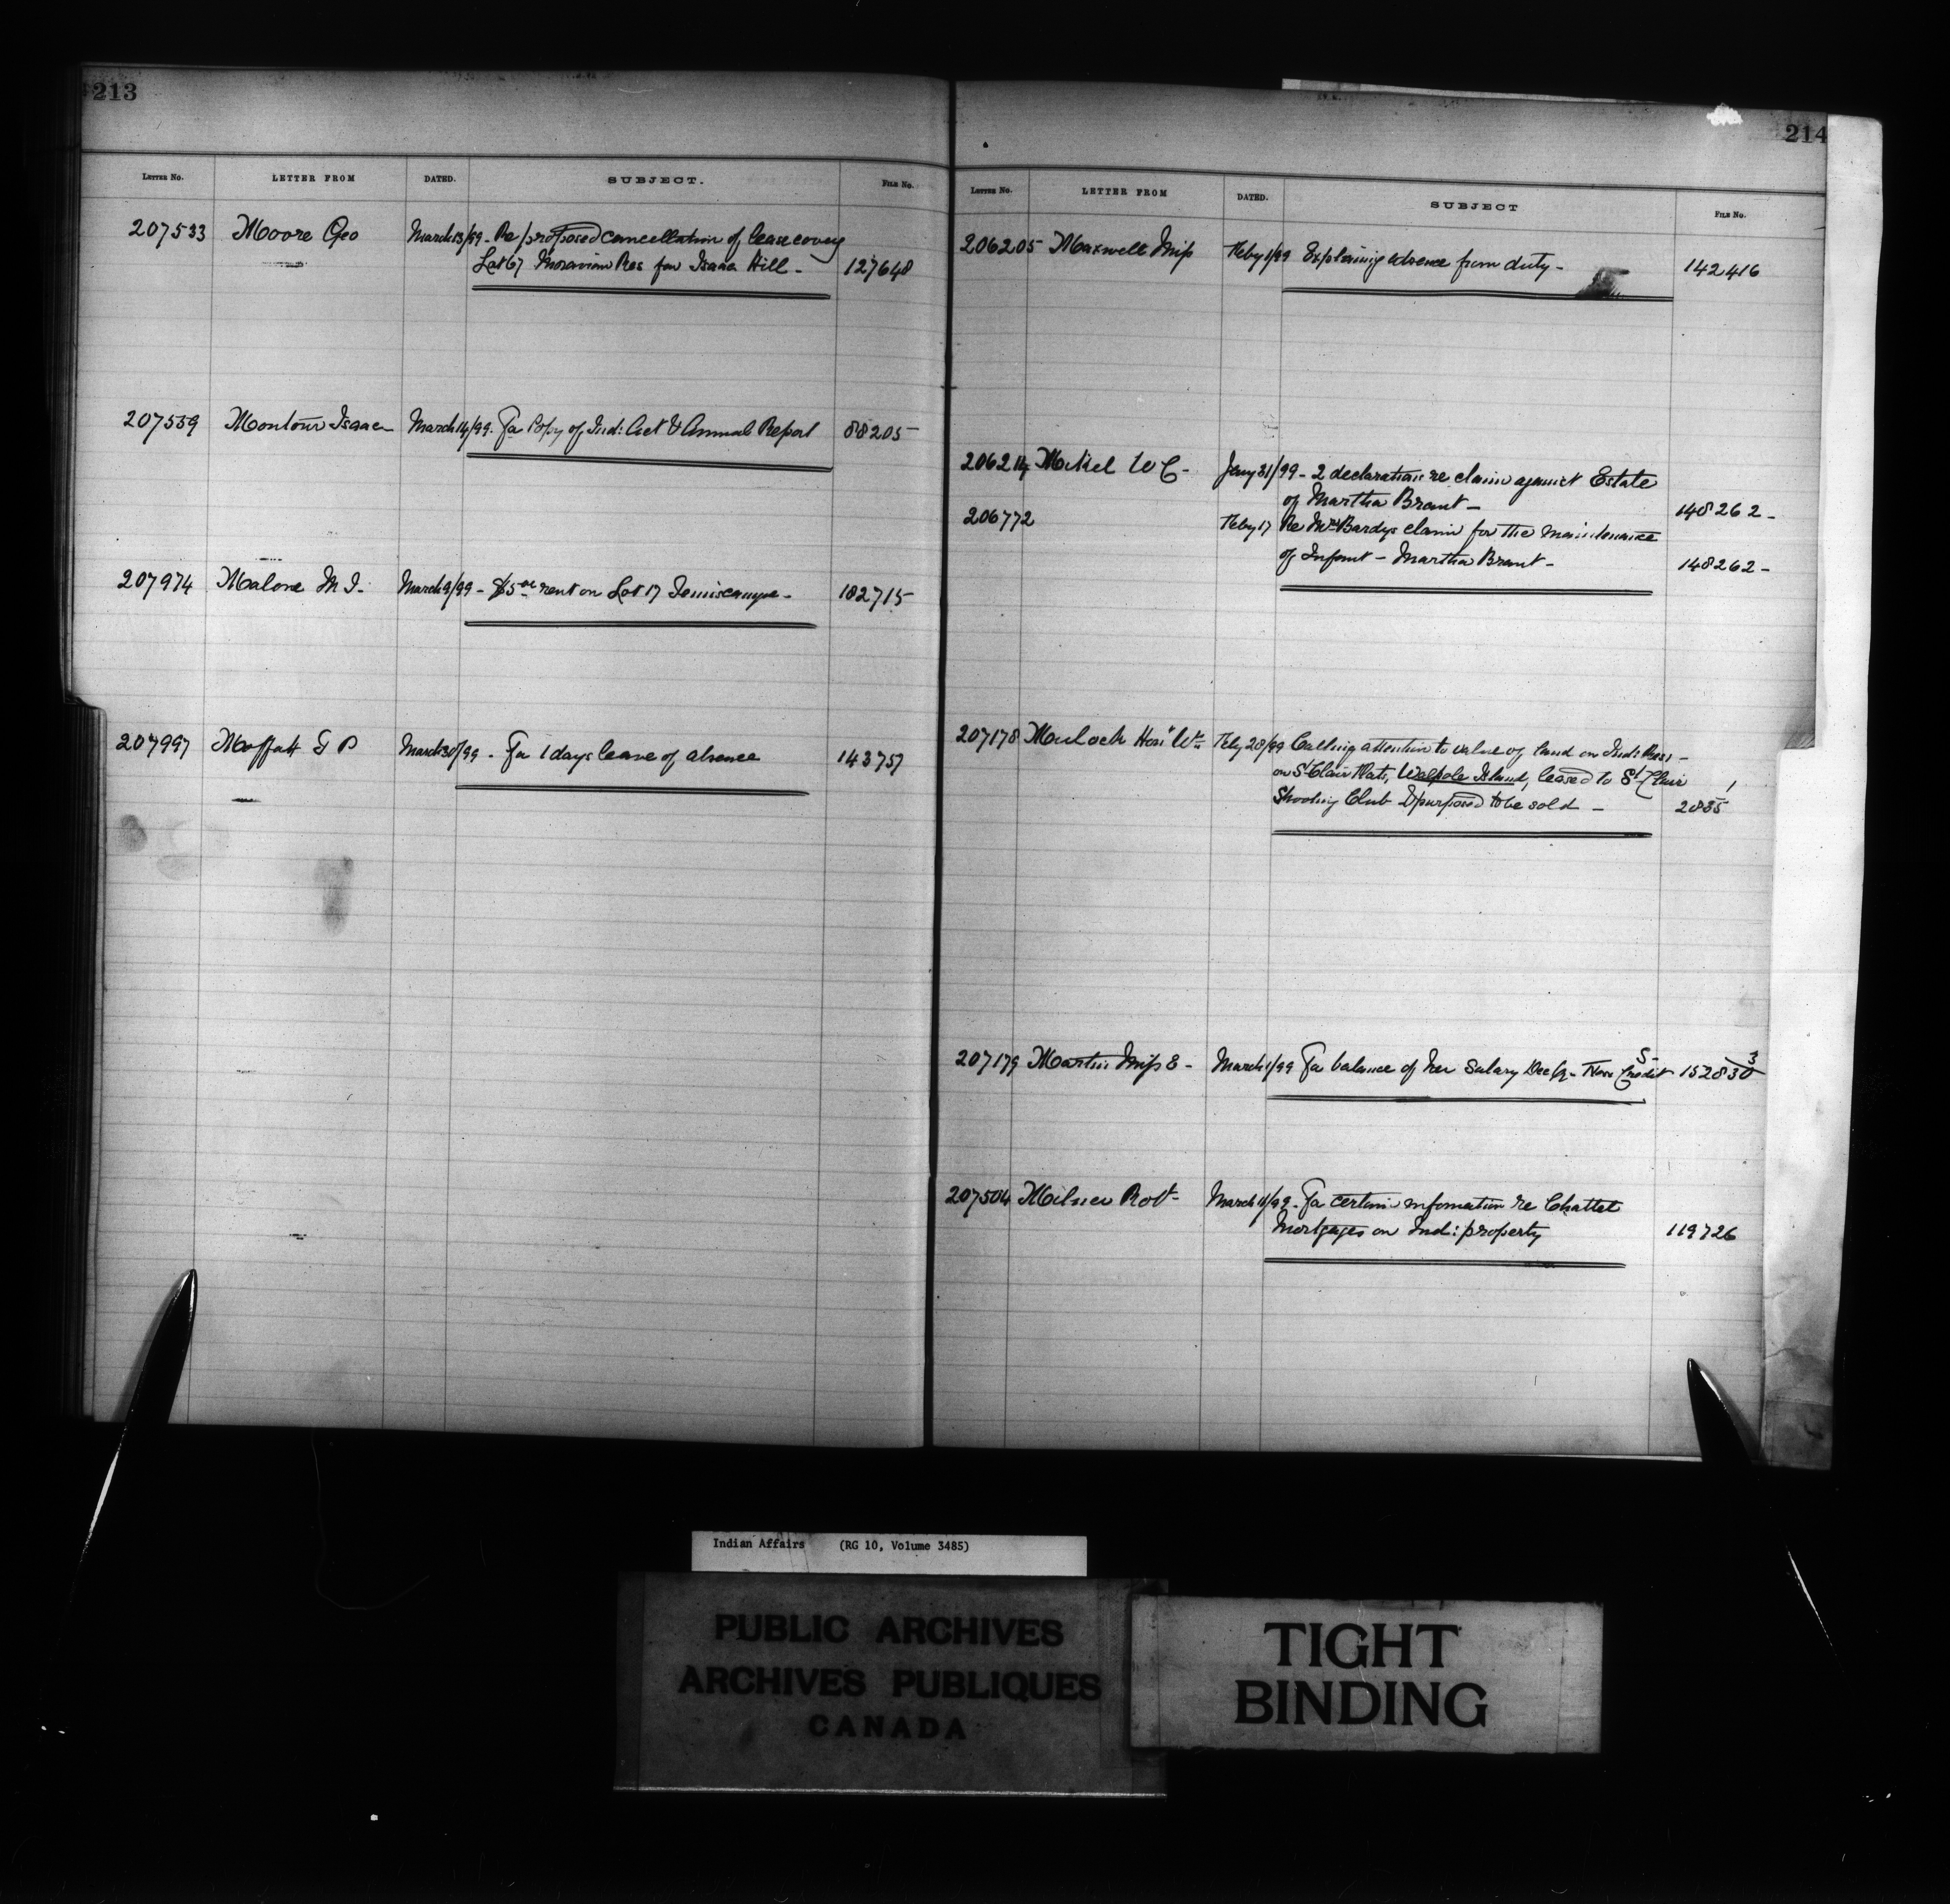 213
LETTER NO. LETTER FROM DATED. SUBJECT. FILE No.
207533 Moore Geo March 13/99 - Re proposed cancellation of lease coverg
Lot 67 Moravian Res for Isaac Hill - 127648
207559 Montour Isaac March 14/99. For Copy of Ind: Act & Annual Report 88205
207974 Malone M. J. March 9/99 - $5.00 rent on Lot 17 Temiscamgue - 182715
207997 Moffatt G P March 30/99 - For 1 days leave of absence 143757
214
LETTER NO. LETTER FROM DATED. SUBJECT FILE No.
206205 Maxwell Miss Feby 1/99 Explaining absence from duty - 142416
206214 Mikel W C - Jany 31/99 - 2 declarations re claim against Estate
of Martha Brant - 148262 -
206772 Feby 17 Re Mrs Bardys claim for the maintenance
of Infant - Martha Brant - 148262 -
207178 Mulock Hon Wm Feby 28/99 Calling attention to value of land on Ind: Res: -
on St Clair Flats, Walpole Island, leased to St Clair
Shooting Club & purposed to be sold - 2835
207179 Martin Miss E - March 1/99 For balance of her Salary Dec qr - New Credit 152830
207504 Milner Robt - March 11/99 - For certain information re Chattel
Mortgages on Ind: property 119726
Indian Affairs (RG 10, Volume 3485)
PUBLIC ARCHIVES
ARCHIVES PUBLIQUES
CANADA
TIGHT
BINDING